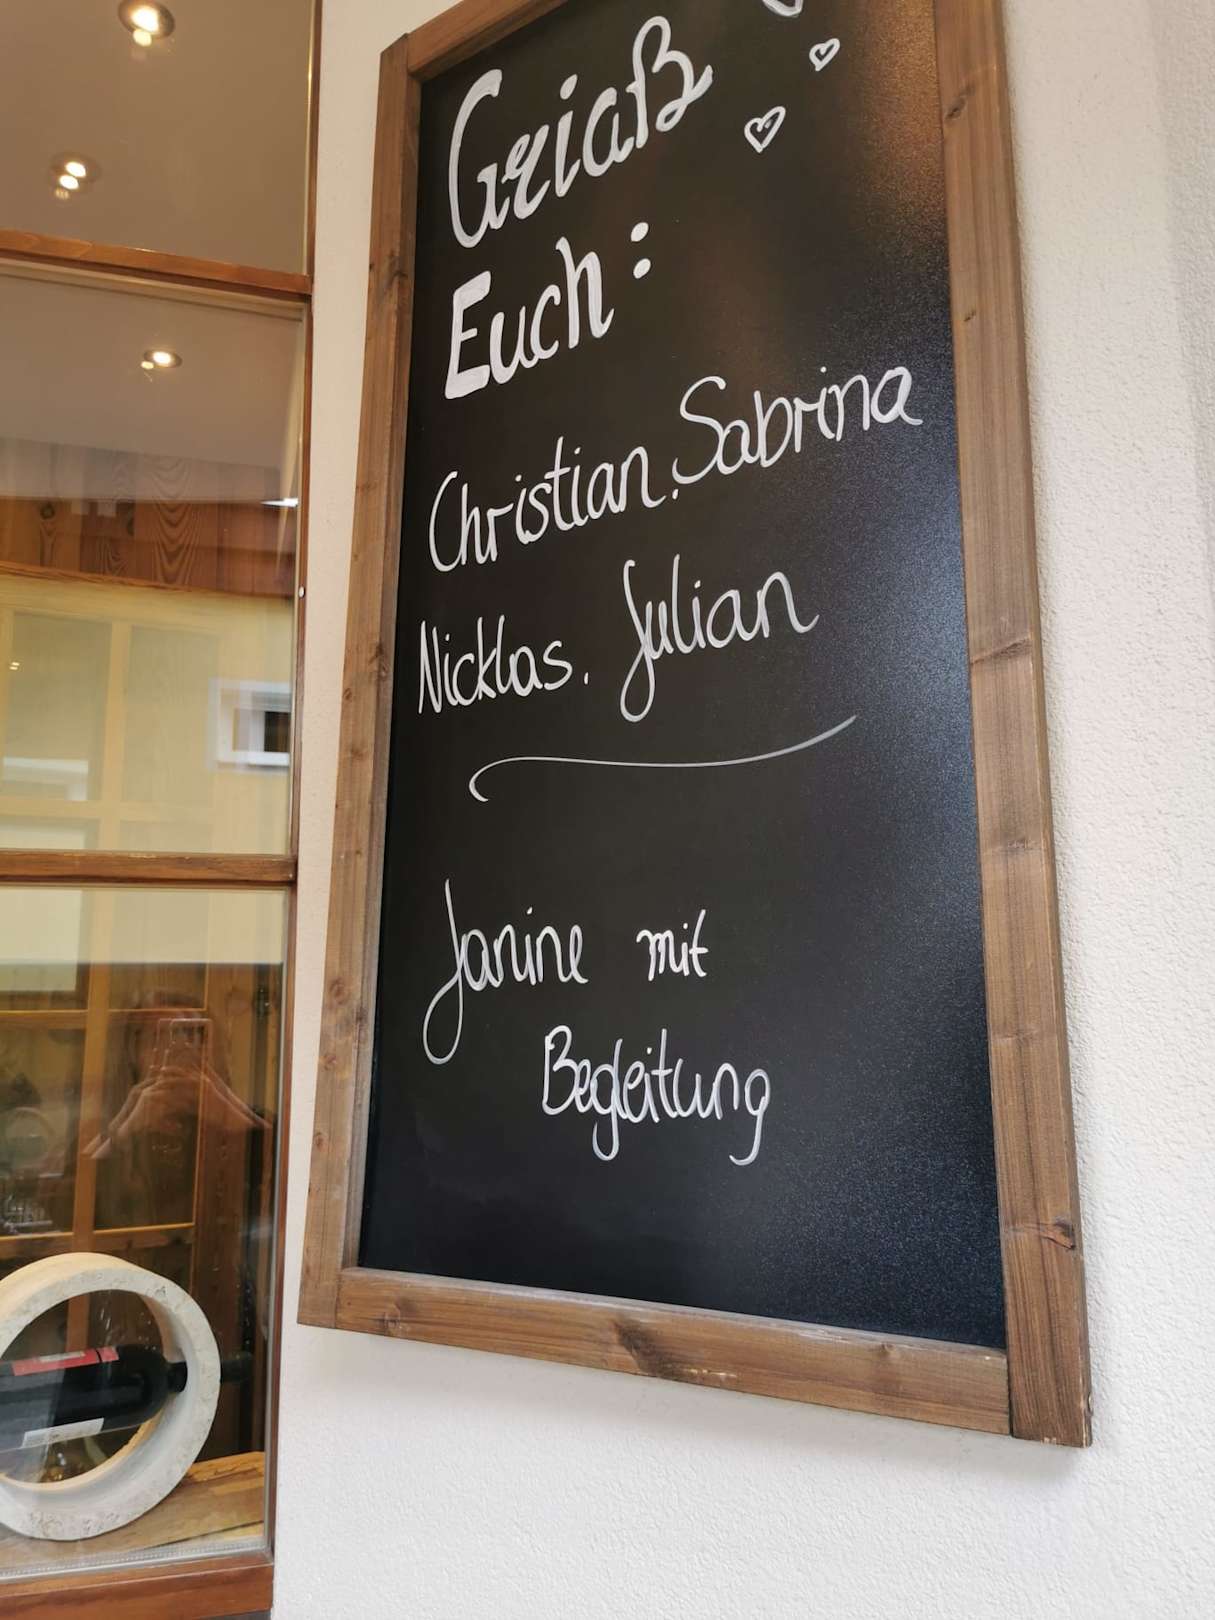 Griaß
Euch:
Christian, Sabrina
Nicklas, Julian
Janine mit
Begleitung